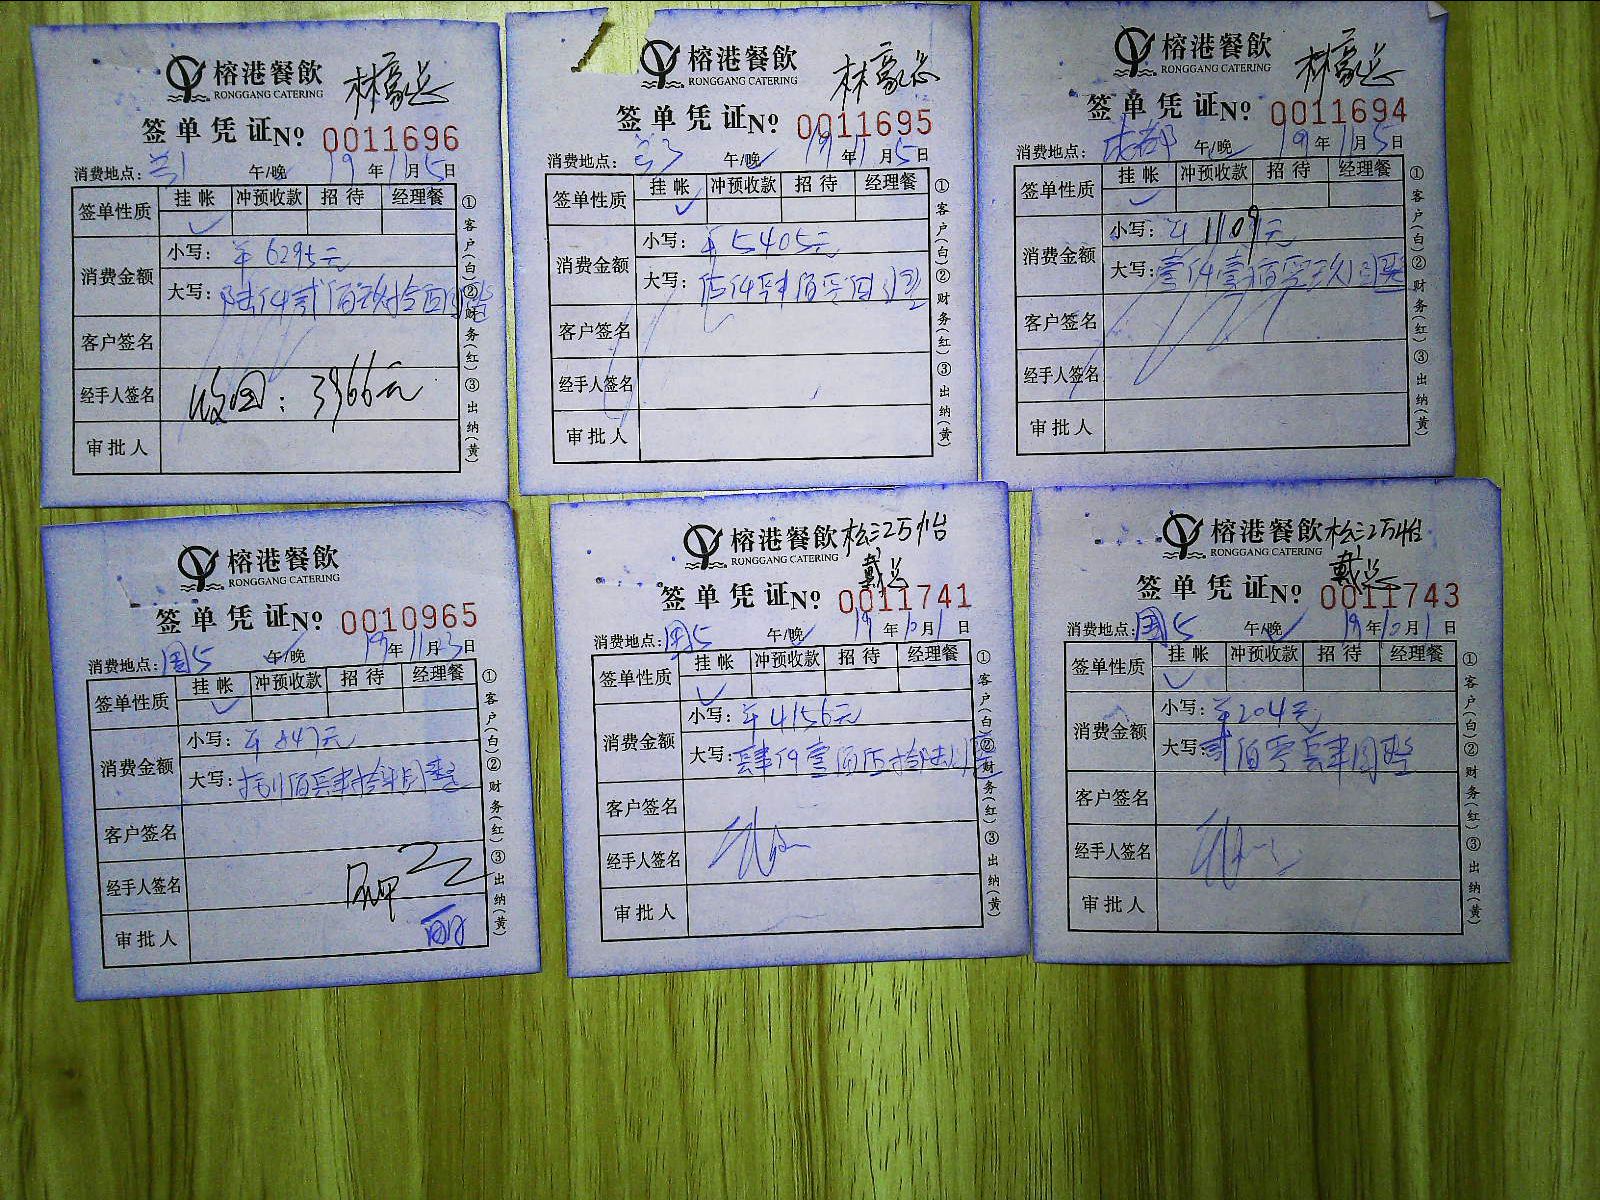 榕港餐飲 林豪总
RONGGANG CATERING
签单凭证№ 0011696
消费地点: 兰1 午/晚 19年11月5日
签单性质 挂帐 冲预收款 招待 经理餐
✓
消费金额 小写: ¥6295元
大写: 陆仟贰佰玖拾伍圆整
客户签名
经手人签名 收回: 3966元
审批人
①客户(白)②财务(红)③出纳(黄)
榕港餐飲 林豪总
RONGGANG CATERING
签单凭证№ 0011695
消费地点: 兰3 午/晚✓ 19年11月5日
签单性质 挂帐 冲预收款 招待 经理餐
✓
消费金额 小写: ¥5405元
大写: 伍仟肆佰零伍圆整
客户签名
经手人签名
审批人
①客户(白)②财务(红)③出纳(黄)
榕港餐飲 林豪总
RONGGANG CATERING
签单凭证№ 0011694
消费地点: 成都 午/晚✓ 19年11月5日
签单性质 挂帐 冲预收款 招待 经理餐
✓
消费金额 小写: ¥1109元
大写: 壹仟壹佰零玖圆整
客户签名
经手人签名
审批人
①客户(白)②财务(红)③出纳(黄)
榕港餐飲
RONGGANG CATERING
签单凭证№ 0010965
消费地点: 国5 午/晚 19年11月3日
签单性质 挂帐 冲预收款 招待 经理餐
✓
消费金额 小写: ¥847元
大写: 捌佰肆拾柒圆整
客户签名
经手人签名
审批人
①客户(白)②财务(红)③出纳(黄)
榕港餐飲 松江万怡
RONGGANG CATERING 戴总
签单凭证№ 0011741
消费地点: 国5 午/晚✓ 19年10月1日
签单性质 挂帐 冲预收款 招待 经理餐
✓
消费金额 小写: ¥4156元
大写: 肆仟壹佰伍拾陆圆整
客户签名
经手人签名
审批人
①客户(白)②财务(红)③出纳(黄)
榕港餐飲 松江万怡
RONGGANG CATERING 戴总
签单凭证№ 0011743
消费地点: 国5 午/晚✓ 19年10月1日
签单性质 挂帐 冲预收款 招待 经理餐
✓
消费金额 小写: ¥204元
大写: 贰佰零肆圆整
客户签名
经手人签名
审批人
①客户(白)②财务(红)③出纳(黄)